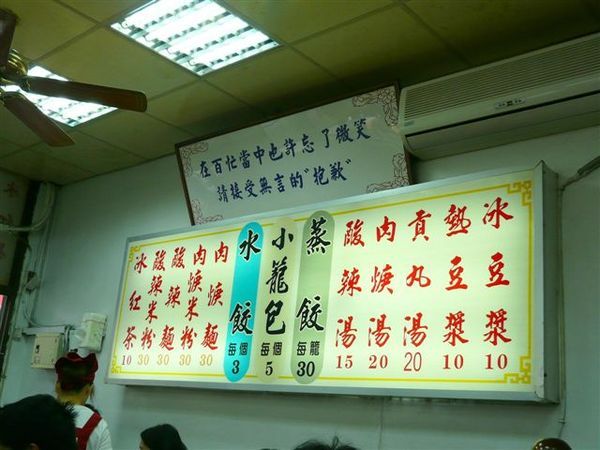 在百忙當中也許忘了微笑
請接受無言的"抱歉"
冰豆漿 10
熱豆漿 10
貢丸湯 20
肉焿湯 20
酸辣湯 15
蒸餃 每籠 30
小龍包 每個 5
水餃 每個 3
肉焿麵 30
肉焿米粉 30
酸辣麵 30
酸辣米粉 30
冰紅茶 10